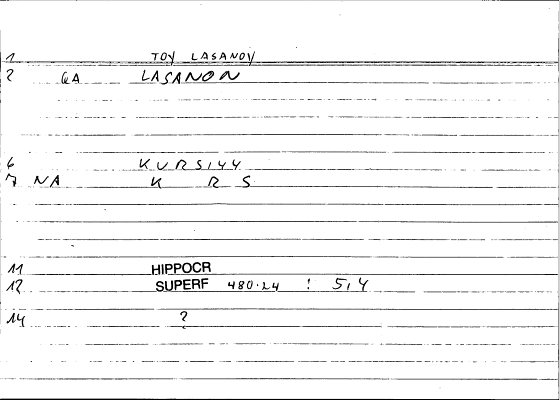 1 TOY LASANOY
2 GA LASANON
6 KURSIYY
7 NA K R S
11 HIPPOCR
12 SUPERF 480.24 : 5,4
14 ?